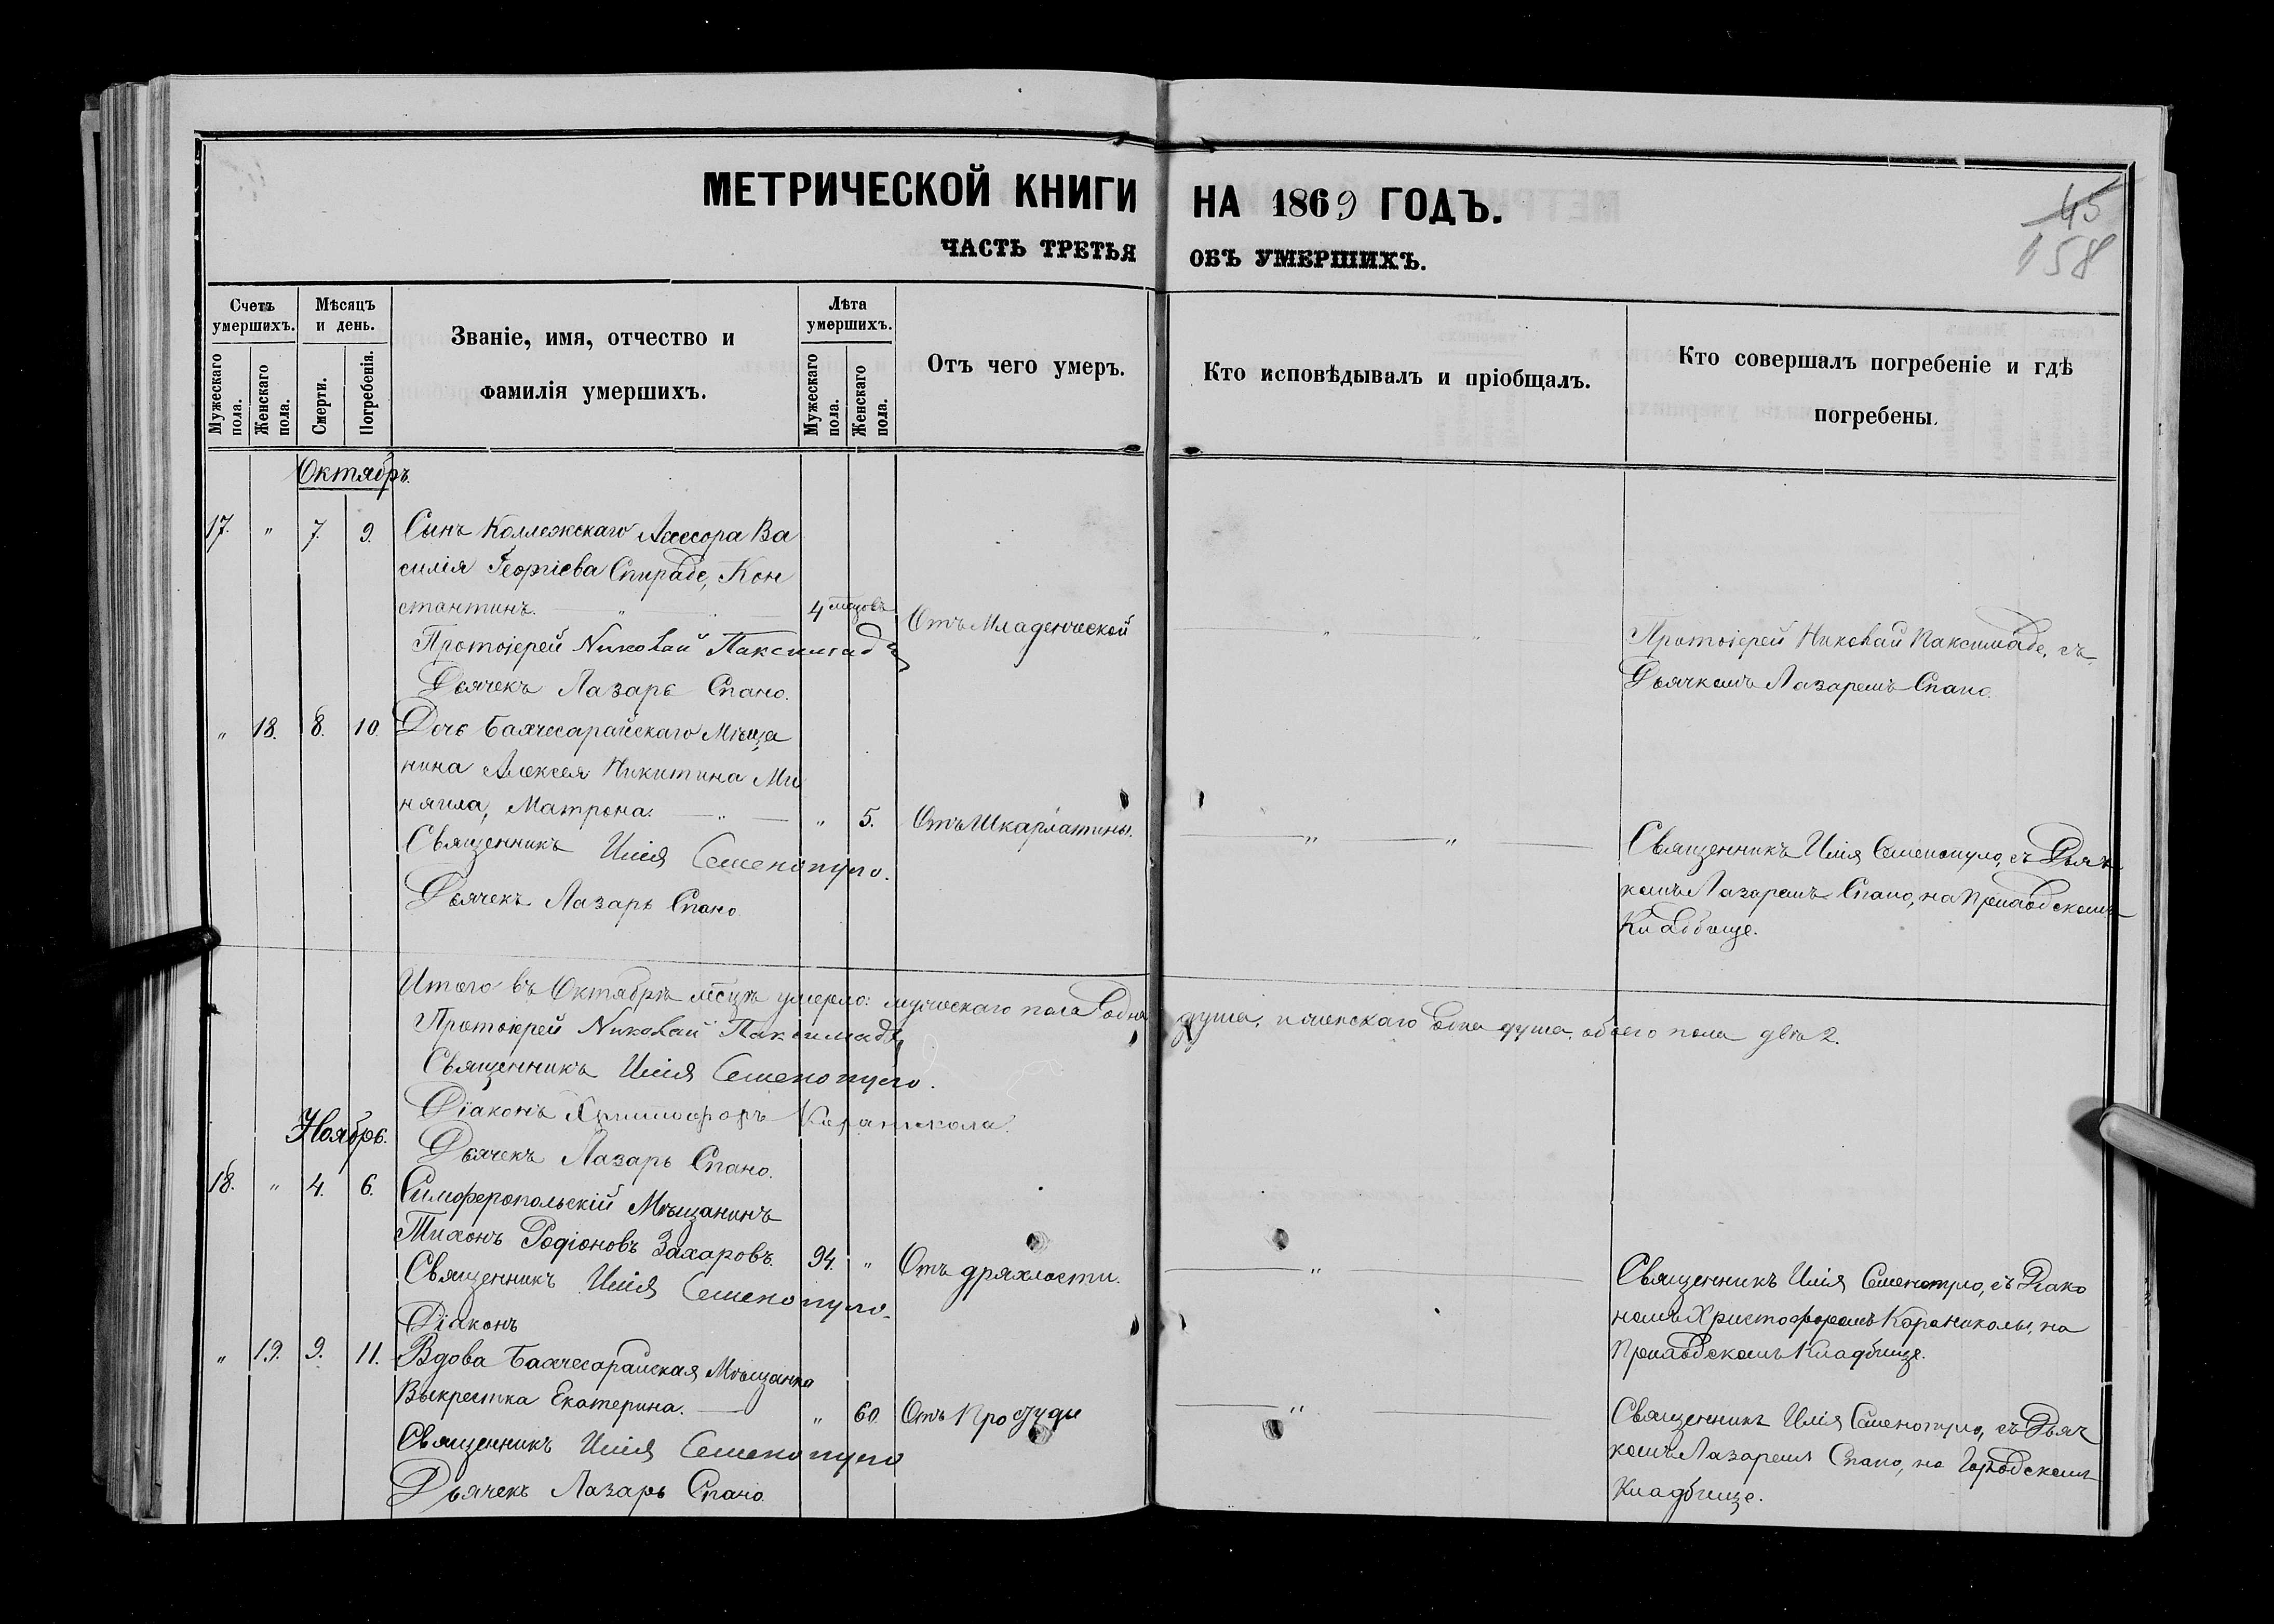 МЕТРИЧЕСКОЙ КНИГИ НА 1869 ГОДЪ.
ЧАСТЬ ТРЕТЬЯ ОБЪ УМЕРШИХЪ.
45
158
Счетъ умершихъ.
Мужескаго пола.
Женскаго пола.
Мѣсяцъ и день.
Смерти.
Погребенія.
Званіе, имя, отчество и
фамилія умершихъ.
Лѣта умершихъ.
Мужескаго пола.
Женскаго пола.
Отъ чего умеръ.
Кто исповѣдывалъ и пріобщалъ.
Кто совершалъ погребеніе и гдѣ
погребены.
Октябрь.
17. " 7. 9. Сынъ Коллежскаго Ассесора Ва
силія Георгіева Спираде, Кон
стантинъ. 4 мѣсцовъ Отъ Младенческой
Протоіерей Николай Паксимаде
Дьячекъ Лазарь Спано.
Протоіерей Николай Паксимаде, съ
Дьячкомъ Лазаремъ Спано.
" 18. 8. 10. Дочь Бахчесарайскаго Мѣща
нина Алексея Никитина Ми
няила, Матрона. " 5. Отъ Шкарлатины.
Священникъ Илія Семенопуло.
Дьячекъ Лазарь Спано.
Священникъ Илія Семенопуло, съ Дьяч
комъ Лазаремъ Спано, на
Кладбище.
Итого въ Октябрѣ мѣсцѣ умерло: мужескаго пола одна душа, и женскаго одна душа, обоего пола двѣ 2.
Протоіерей Николай Паксимаде
Священникъ Илія Семенопуло.
Діаконъ Христофоръ Караникола.
Дьячекъ Лазарь Спано.
Ноябрь.
18. " 4. 6. Симферопольскій Мѣщанинъ
Тихонъ Родіоновъ Захаровъ. 94. " Отъ дряхлости.
Священникъ Илія Семенопуло.
Діаконъ
Священникъ Илія Семенопуло, съ Діако
номъ Христофоромъ Караниколы, на
Кладбище.
" 19. 9. 11. Вдова Бахчесарайская Мѣщанка
Выкрестка Екатерина. " 60. Отъ Простуды
Священникъ Илія Семенопуло
Дьячекъ Лазарь Спано.
Священникъ Илія Семенопуло, съ Дьяч
комъ Лазаремъ Спано, на Городскомъ
Кладбище.